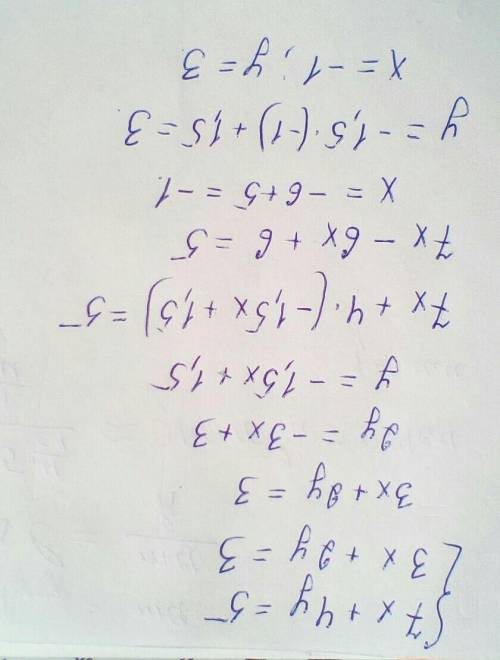 {7x + 4y = 5
3x + 2y = 3
3x + 2y = 3
2y = -3x + 3
y = -1,5x + 1,5
7x + 4·(-1,5x + 1,5) = 5
7x - 6x + 6 = 5
x = -6 + 5 = -1
y = -1,5·(-1) + 1,5 = 3
x = -1; y = 3